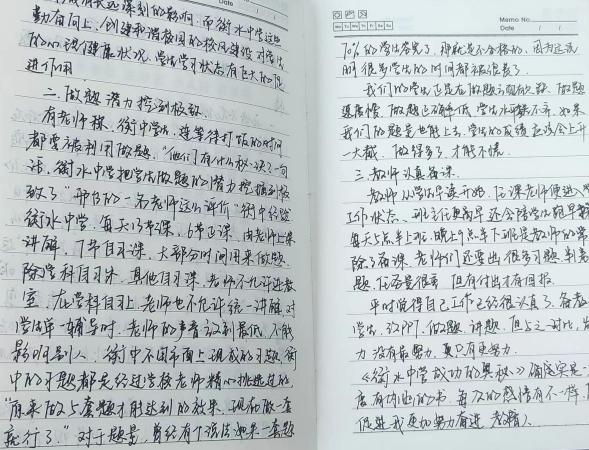 勤奋向上,创建和谐校园的校风建设对学生
的心理健康状况、学生学习状态有巨大的促
进作用
二、做题潜力挖到极致.
有老师称,衡中学生,连等待打饭的时间
都要被利用做题,“他们有什么秘诀?一句
话,衡水中学把学生做题的潜力挖掘到极
致了”那日的一名老师这么评价“衡中经验
衡水中学,每天13节课,6节正课,由老师上课
讲解,7节自习课,大部分时间用来做题.
除学科自习外,其他自习课,老师不允许进教
室,在学科自习上,老师也不允许统一讲解,对
学生单一辅导时,老师的声音放到最低,不能
影响别人,衡中不用市面上现成的习题,衡
中的习题都是经过学校老师精心挑选过的,
“原来做5套题才能达到的效果,现在做一套
就行了.”对于题量,曾经有个说法:如果一套题
Memo No.
Mo Tu We Th Fr Sa Su
Date
70%的学生答完了,那就是不合格的,因为这说
明很多学生的时间都被浪费了.
我们的学生正是在做题方面欠缺,做题
速度慢,做题正确率低,学生水平参差不齐,如果
我们的题量也能上去,学生的成绩应该会上升
一大截,做得多了,才能不慌.
三、教师认真备课.
教师从学生早读开始,任课老师便进入
工作状态,班主任更需早,还会陪学生跑早操
每天5点半上班,晚上9点半下班是教师的常
除了备课,老师们还要出很多习题,判卷
题,任务量很重,但有付出才有回报.
平时觉得自己工作已经很认真了,备教
学生,设PPT,做题,讲题,但与之对比,
力没有最努力,更只有更努力.
《衡水中学成功的奥秘》确实是一
度有价值的书,每次的感悟有不一样,
促进我更加努力奋进